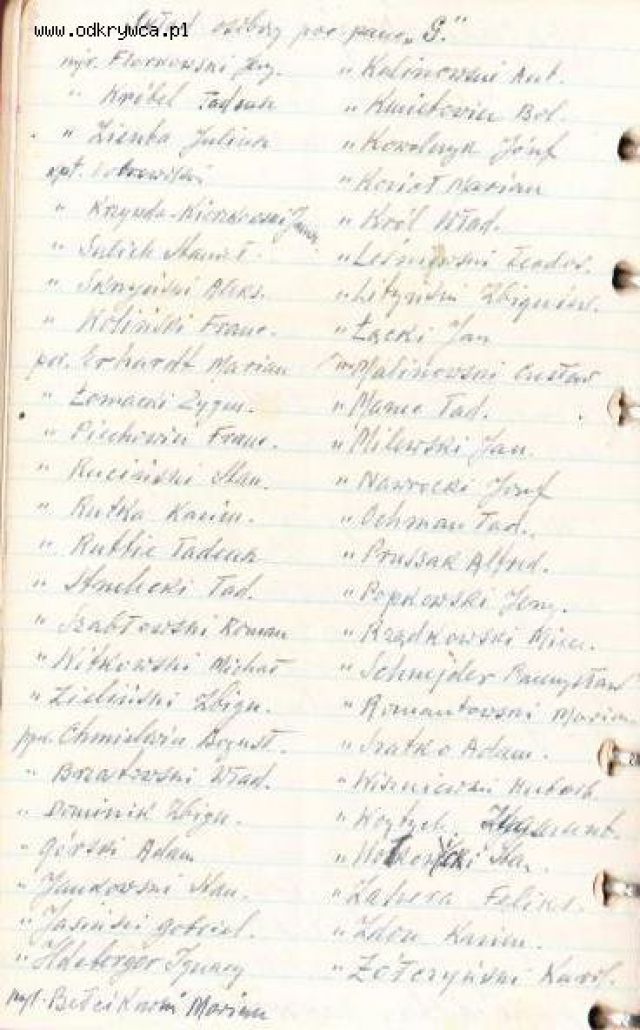 www.odkrywca.pl
Skład osobowy poc. panc. "G."
mjr. Florkowski Jerzy.
" Kröbel Tadeusz
" Zienta Juliusz
kpt.
" Krzywda- Janusz
" Sulich Stanisł.
" Skrzyński Aleks.
" Koliński Franc.
por. Erhardt Marian
" Łomacki Zygm.
" Piechowicz Franc.
" Ruciński Stan.
" Rutka Kazim.
" Ruttie Tadeusz
" Strzelecki Tad.
" Szabłowski Roman
" Witkowski Michał
" Zieliński Zbign.
ppor. Chmielewicz Bogusł.
" Władł.
" Dominik Zbign.
" Górski Adam
" Jankowski Stan.
" Jasiński Gabriel.
" Ildeberger Ignacy
Marian
" Kalinowski Ant.
" Kmietowicz Bol.
" Kowalczyk Józef
" Kozioł Marian
" Król Wład.
" Leśniewski Teodor.
" Letyński Zbigniew.
" Łącki Jan
" Malinowski Gustaw
" Mamc Tad.
" Milewski Jan.
" Nawrocki Józef
" Ochman Tad.
" Prussak Alfred.
" Popkowski Jerzy.
" Rządkowski Miecz.
" Schnejder Przemysław
" Romantowski Marian
" Szatko Adam.
" Wiśniewski
" Wojtych Zygmunt.
" Sta.
" Zahera Feliks.
" Zdon Kazim.
" Żółczyński Karol.